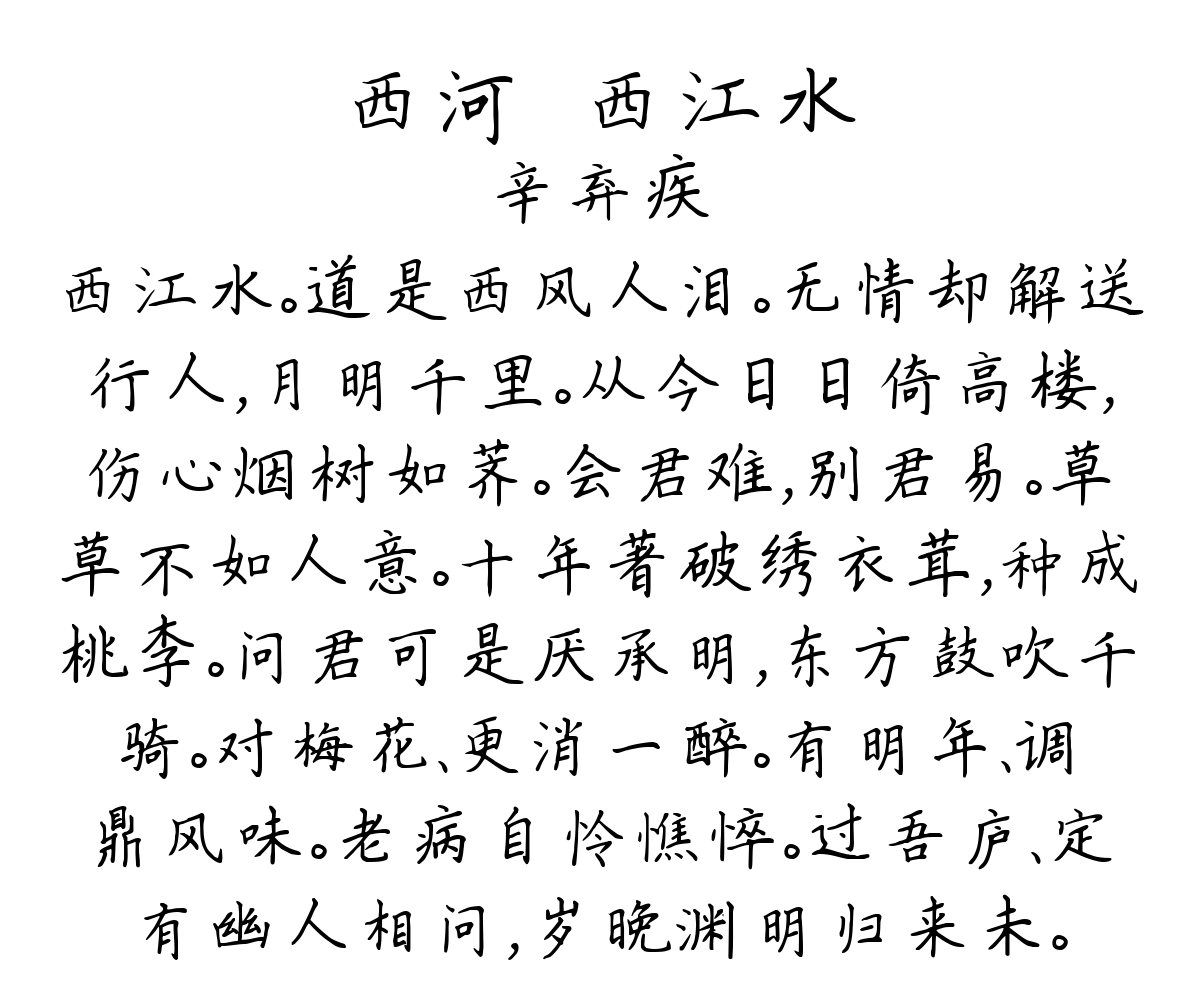 西河 西江水
辛弃疾
西江水。道是西风人泪。无情却解送
行人,月明千里。从今日日倚高楼,
伤心烟树如荠。会君难,别君易。草
草不如人意。十年著破绣衣茸,种成
桃李。问君可是厌承明,东方鼓吹千
骑。对梅花、更消一醉。有明年、调
鼎风味。老病自怜憔悴。过吾庐、定
有幽人相问,岁晚渊明归来未。